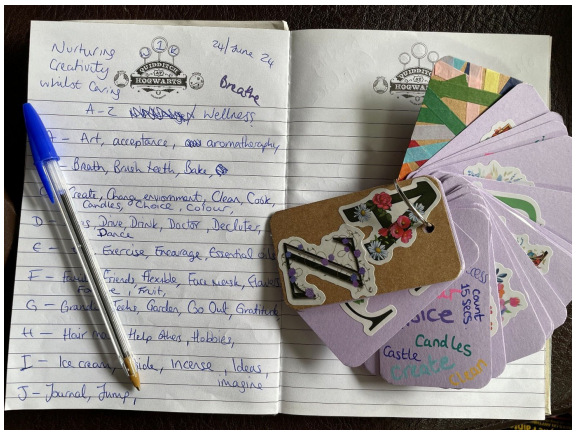 Nurturing
Creativity
whilst Caring
24/June 24
QUIDDITCH
AT
HOGWARTS
Breathe
A-Z Wellness
A - Art, acceptance, aromatherapy,
- Breath, Brush teeth, Bake,
Create, Change environment, Clean, Cook,
Candles, Choice, Colour,
D - Drive, Drink, Doctor, Declutter,
Dance
E - Exercise, Encourage, Essential oils
F - Friends, Flexible, Face mask, Flowers
Fruit,
G - Teeths, Garden, Go Out, Gratitude
H - Hair Help others, Hobbies,
I - Ice cream, Incense, Ideas,
imagine
J - Journal, Jump,
QUIDDITCH
AT
HOGWARTS
A
Z
count
15 secs
Candles
Castle
Create
Clean